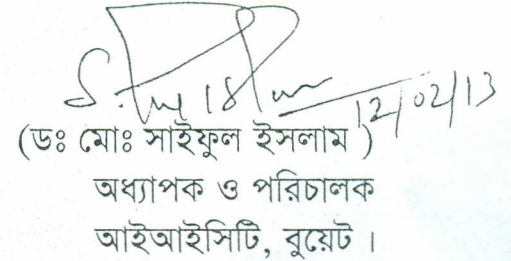 12/02/13
(ডঃ মোঃ সাইফুল ইসলাম )
অধ্যাপক ও পরিচালক
আইআইসিটি, বুয়েট ।